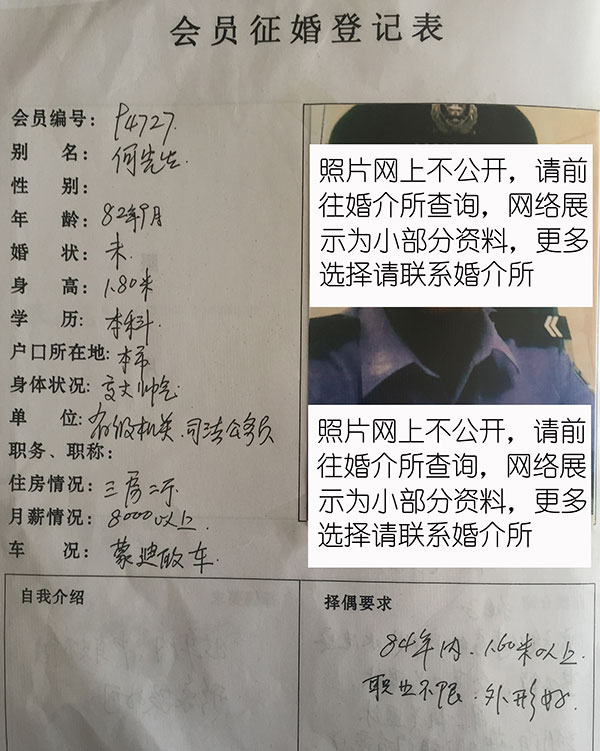 会员征婚登记表
会员编号: P4727.
别 名: 何先生
性 别:
年 龄: 82年9月
婚 状: 未
身 高: 1.80米
学 历: 本科
户口所在地: 本市
身体状况: 高大帅气
单 位: 省级机关.司法公务员
职务、职称:
住房情况: 三房二厅
月薪情况: 8000以上.
车 况: 蒙迪欧车.
照片网上不公开，请前
往婚介所查询，网络展
示为小部分资料，更多
选择请联系婚介所
照片网上不公开，请前
往婚介所查询，网络展
示为小部分资料，更多
选择请联系婚介所
自我介绍
择偶要求
84年内. 1.60米以上.
职业不限. 外形好